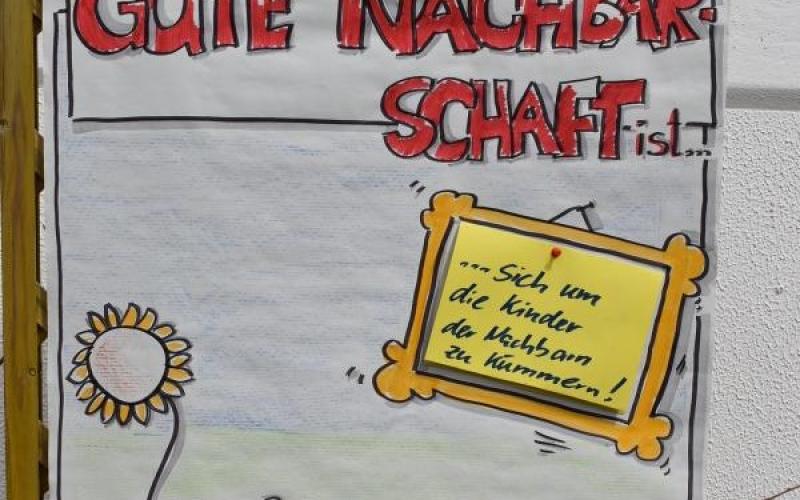 GUTE NACHBAR-
SCHAFT ist...
...Sich um
die Kinder
der Nachbarn
zu Kümmern!